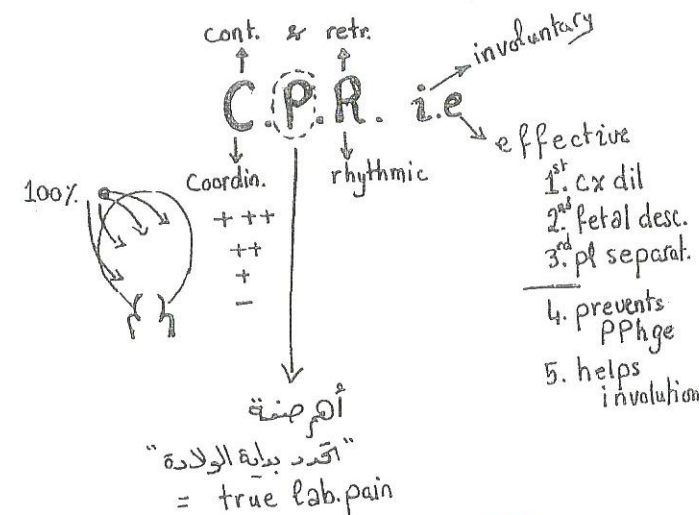 cont. & retr.
involuntary
C.P.R. i.e
effective
Coordin.
rhythmic
100%
+ ++
++
+
−
1st. cx dil
2nd. fetal desc.
3rd. pl separat.
4. prevents
PPhge
5. helps
involution
أهم صفة
"تحدد بداية الولادة"
= true lab.pain